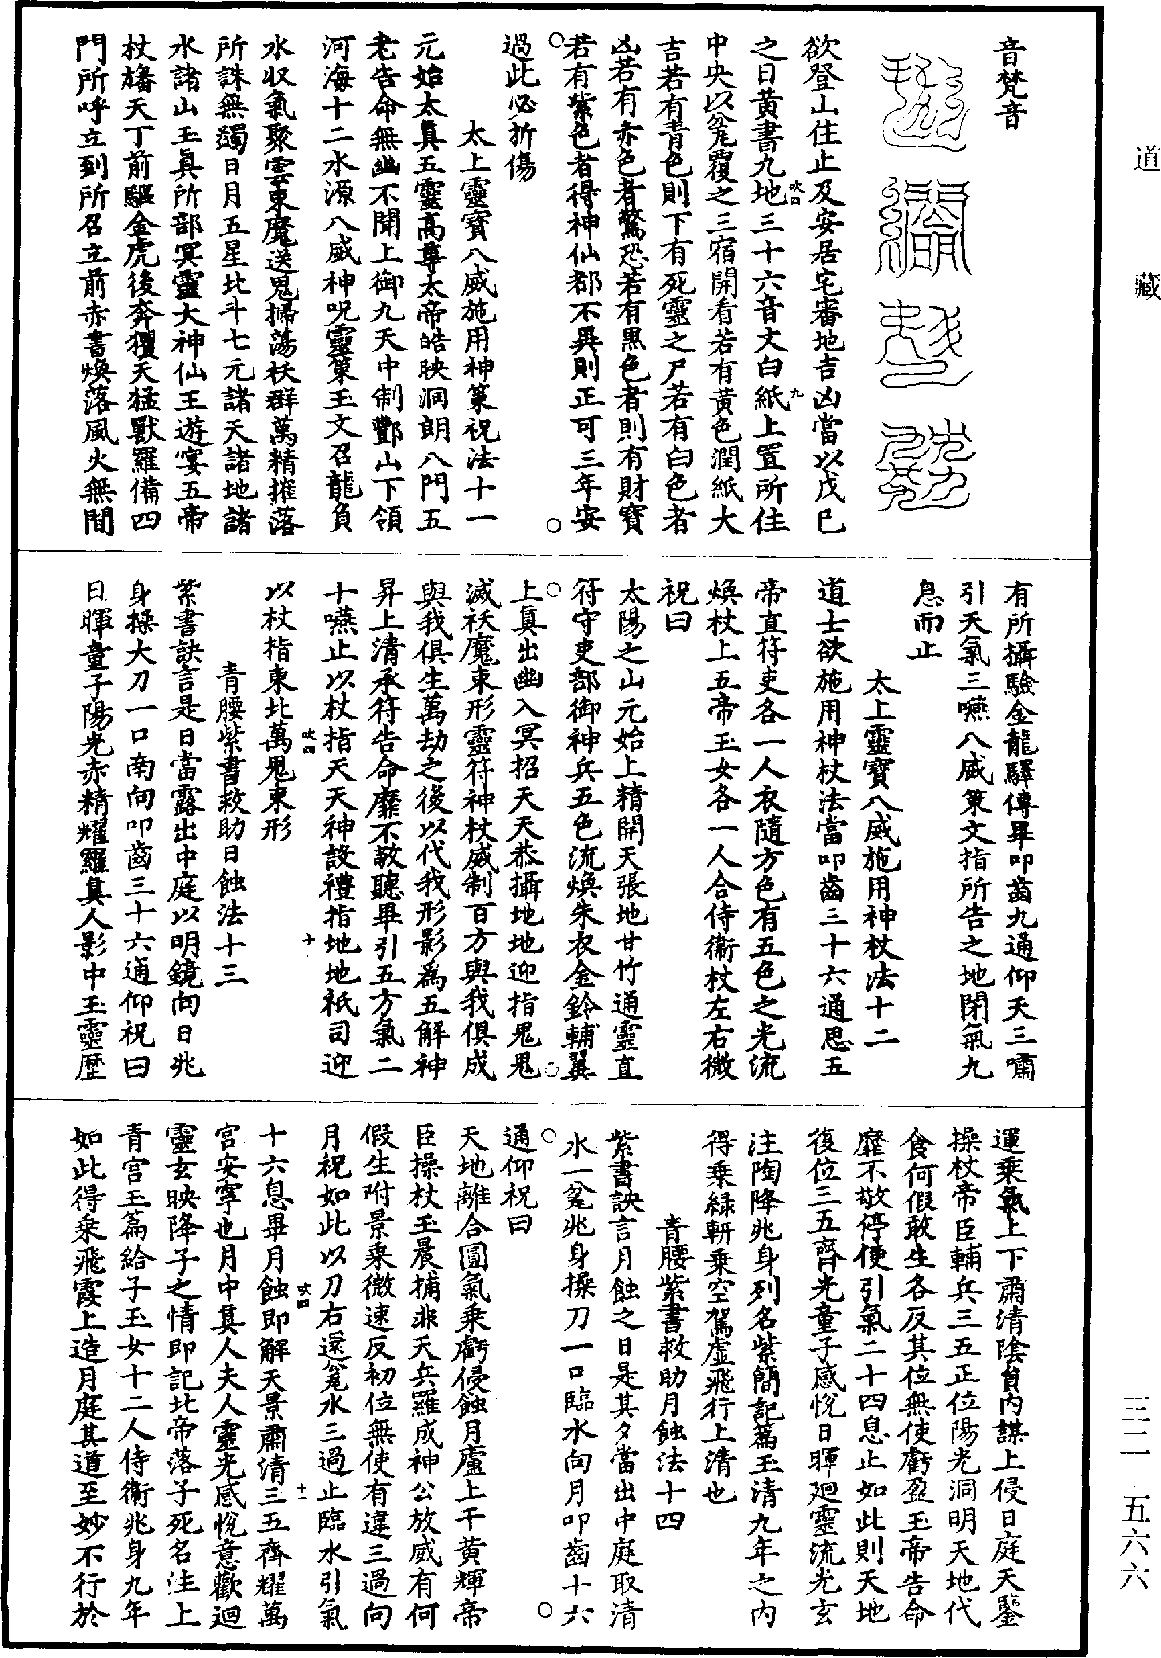 道藏
三二 五六六
音梵音
欲登山住止及安居宅審地吉凶當以戊巳
之日黃書九地三十六音文白紙上置所住
吠四
九
中央以瓮覆之三宿開看若有黃色潤紙大
吉若有青色則下有死靈之尸若有白色者
凶若有赤色者驚恐若有黑色者則有財寶
若有紫色者得神仙都不異則正可三年安
過此必折傷
太上靈寶八威施用神策祝法十一
元始太真五靈高尊太帝皓映洞朗八門五
老告命無幽不開上御九天中制酆山下領
河海十二水源八威神呪靈策玉文召龍負
水収氣聚雲束魔送鬼掃蕩袄群萬精摧落
所誅無蠲日月五星北斗七元諸天諸地諸
水諸山玉真所部冥靈大神仙王遊宴五帝
杖旛天丁前驅金虎後奔玃天猛獸羅備四
門所呼立到所召立前赤書煥落風火無間
有所攝驗金龍驛傳畢叩齒九通仰天三嘯
引天氣三嚥八威策文指所告之地閉氣九
息而止
太上靈寶八威施用神杖法十二
道士欲施用神杖法當叩齒三十六通思五
帝直符吏各一人衣隨方色有五色之光流
煥杖上五帝玉女各一人合侍衛杖左右微
祝曰
太陽之山元始上精開天張地甘竹通靈直
符守吏部御神兵五色流煥朱衣金鈴輔翼
上真出幽入冥招天天恭攝地地迎指鬼鬼
滅袄魔束形靈符神杖威制百方與我俱成
與我俱生萬劫之後以代我形影為五解神
昇上清承符告命靡不敬聽畢引五方氣二
十嚥止以杖指天天神設禮指地地祇司迎
以杖指東北萬鬼束形
吠四
十
青腰紫書救助日蝕法十三
紫書訣言是日當露出中庭以明鏡向日兆
身操大刀一口南向叩齒三十六通仰祝曰
日暉童子陽光赤精耀羅真人影中玉靈歷
運乘氣上下肅清陰貟內謀上侵日庭天鑒
操杖帝臣輔兵三五正位陽光洞明天地代
食何假敢生各反其位無使虧盈玉帝告命
靡不敬停使引氣二十四息止如此則天地
復位三五齊光童子感悅日暉廻靈流光玄
注陶降兆身列名紫簡記篇玉清九年之內
得乘緑軿乘空駕虛飛行上清也
青腰紫書救助月蝕法十四
紫書訣言月蝕之日是其夕當出中庭取清
水一瓮兆身操刀一口臨水向月叩齒十六
通仰祝曰
天地離合圓氣乘虧侵蝕月廬上干黃輝帝
臣操杖玉晨捕非天兵羅成神公放威有何
假生附景乘微速反初位無使有違三過向
月祝如此以刀右遶瓮水三過止臨水引氣
十六息畢月蝕即解天景肅清三五齊耀萬
吠四
十一
宮安寧也月中真人夫人靈光感悅意歡迴
靈玄映降子之情即記北帝落子死名注上
青宮玉篇給子玉女十二人侍衛兆身九年
如此得乘飛霞上造月庭其道至妙不行於